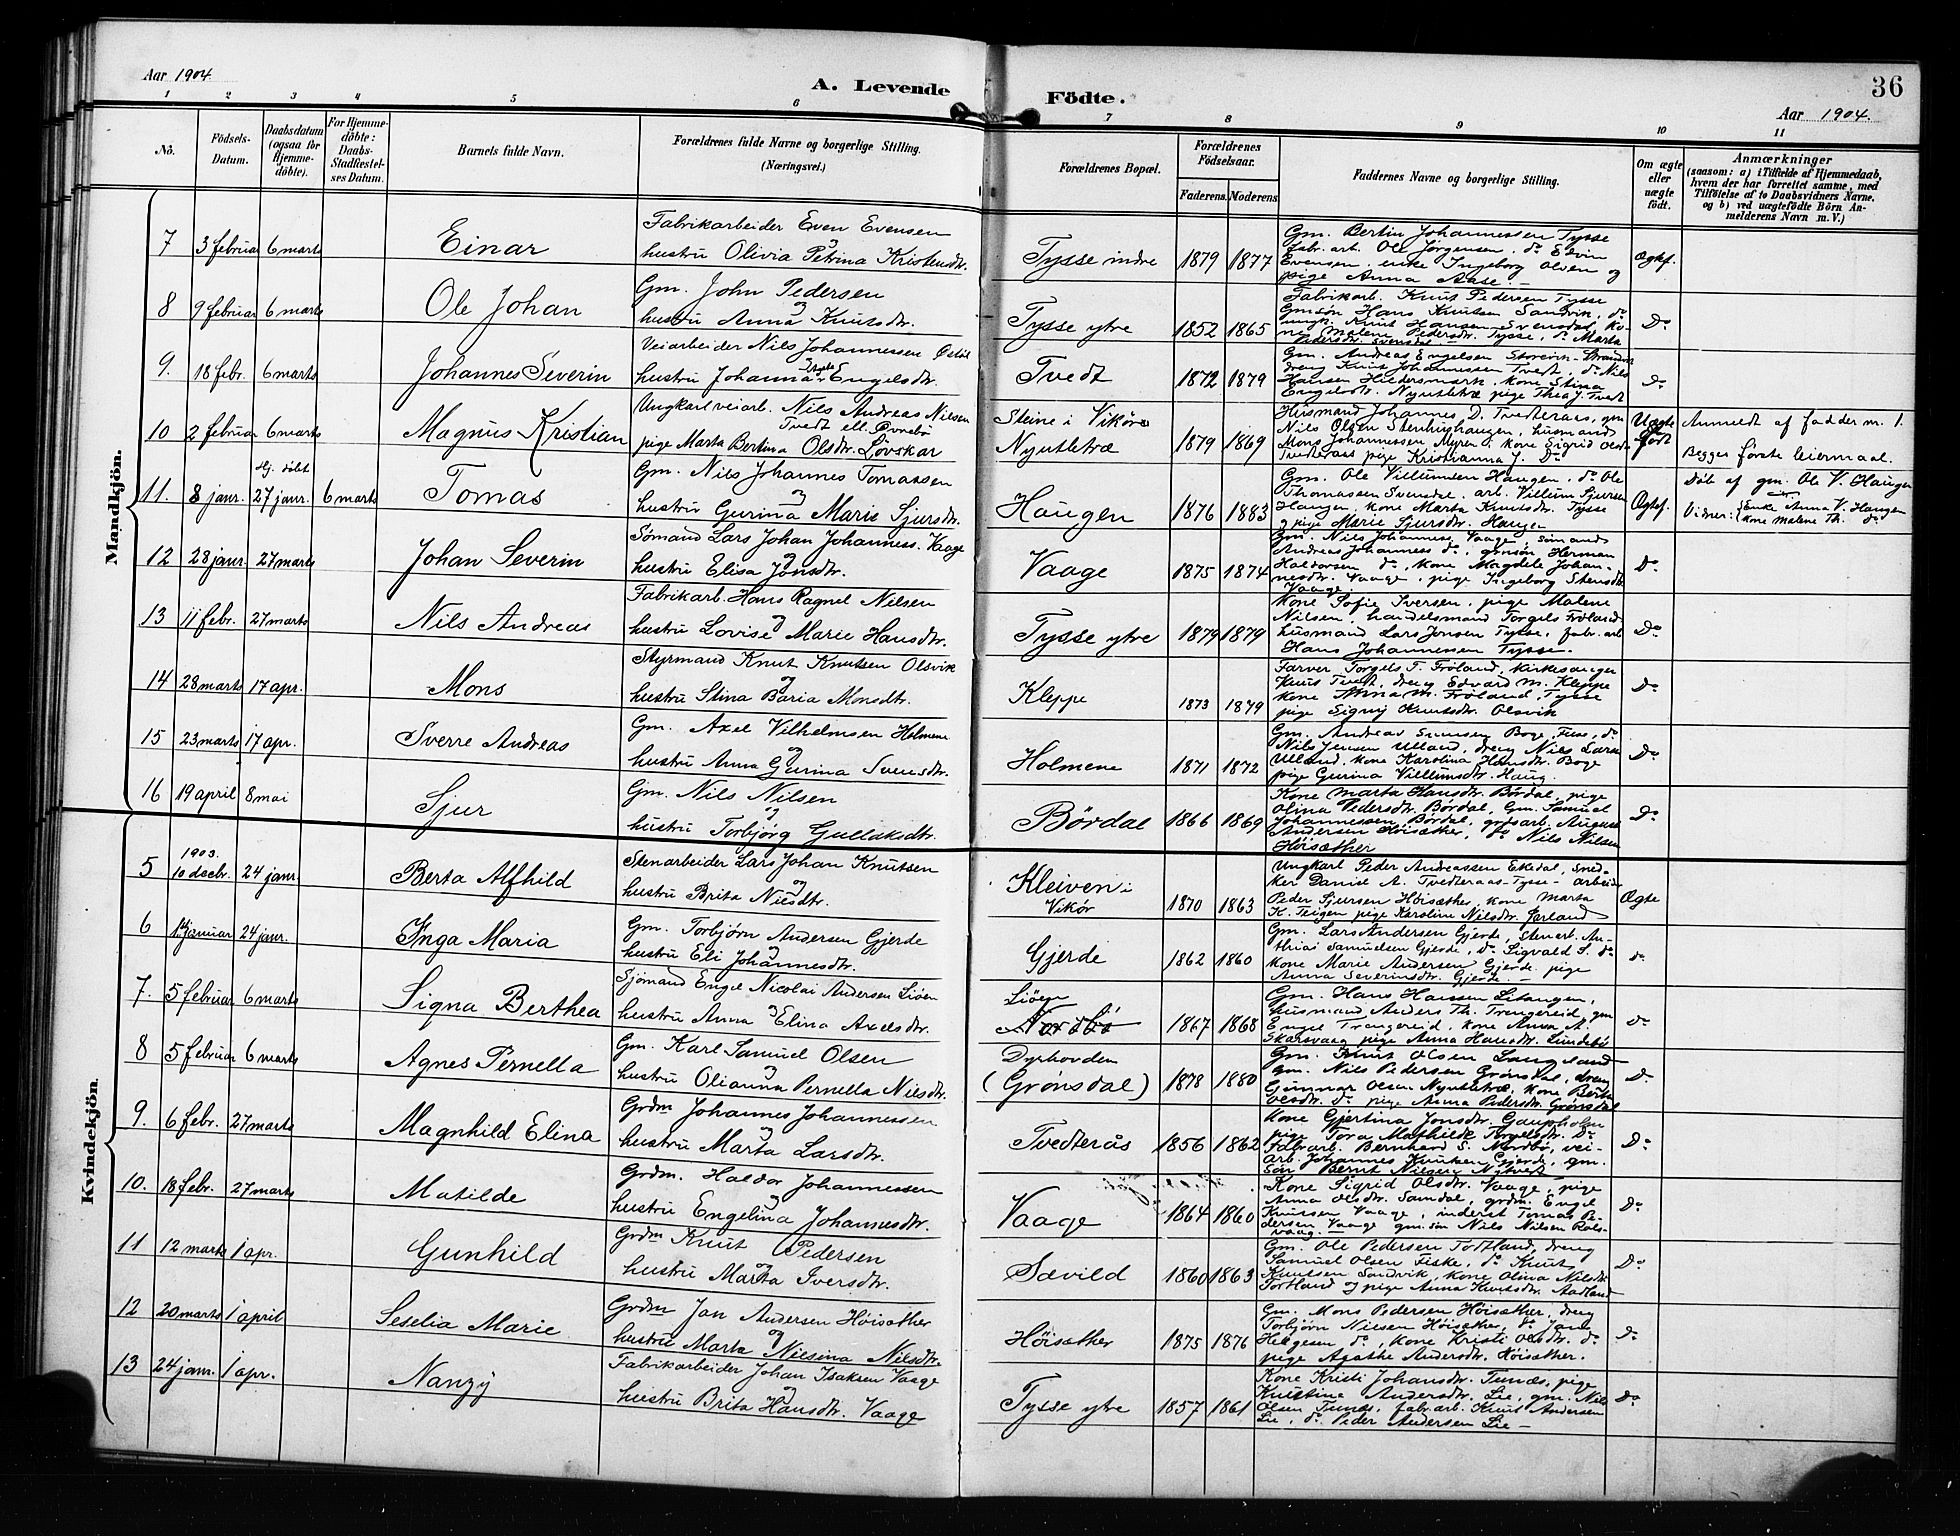 Aar 1904.
A. Levende Födte.
36
Aar 1904.
1 2 3 4 5 6 7 8 9 10 11
No.
Födsels-Datum.
Daabsdatum (ogsaa for Hjemme-döbte).
For Hjemme-döbte: Daabs-Stadfæstel-ses Datum.
Barnets fulde Navn.
Forældrenes fulde Navne og borgerlige Stilling. (Næringsvei.)
Forældrenes Bopæl.
Forældrenes Födselsaar.
Faderens. Moderens
Faddernes Navne og borgerlige Stilling.
Om ægte eller uægte födt.
Anmærkninger (saasom: a) i Tilfælde af Hjemmedaab, hvem der har forrettet samme, med Tilföielse af to Daabsvidners Navne, og b) ved uægtefödte Börn An-melderens Navn m. V.)
Mandkjön.
7 3 februar 6 marts Einar Fabrikarbeider Even Evensen
og
hustru Olivia Petrina Kristensdtr. Tysse indre 1879 1877
Gm. Bertin Johannessen Tysse
fabr. arb. Ole Jørgensen, do Edvin
Evensen, enke Ingeborg Olsen og
pige Anna Aase.
Ægtef.
8 9 februar 6 marts Ole Johan Gm. John Pedersen
og
hustru Anna Knutsdtr. Tysse ytre 1852 1865
Fabrikarb. Knut Pedersen Tysse
Gmsön Hans Knutsen Sandvik, do
ungk. Knut Hansen Svendal, Ko-
ne Malene Pedersdtr. Tysse, do Marta
Pedersdtr. Svendal
Do
9. 18 febr. 6 marts Johannes Severin Veiarbeider Nils Johannessen
hustru Johanna Engelsdtr. Tvedt 1872 1879
Gm. Andreas Engelsen
dreng Knut Johannessen Tvedt, do Nils
Hansen kone Stina
Engelsdtr. Nyutletræ pige Thea J. Tvedt
Do
10 2 februar 6 marts Magnus Kristian Ungkarl veiarb. Nils Andreas Nilsen
Tvedt ell. Øvrebö
pige Marta Bertina Olsdtr. Lövskar
Steine i Vikör
Nyutletræ 1879 1869
Husmand Johannes D. Tvedteraas, gm
Nils Olsen Stenhushaugen, husmand
Mons Johannessen Myren, kone Sigrid Olsdtr
Tvedteraas pige Kristianna J. Do
Uægte född
Anmeldt af fadder no. 1.
Begges første leiermaal.
11. 8 janr. Hj. döbt 27 janr. 6 marts Tomas Gm. Nils Johannes Tomassen
og
hustru Gurina Marie Sjursdtr. Haugen 1876 1883
Gm. Ole Villumsen Haugen, do Ole
Thomassen Svendal, arb. Villum Sjursen
Haugen, kone Marta Knutsdtr. Tysse
og pige Marie Sjursdtr. Haugen
Ægtef.
Döbt af gm. Ole V. Haugen
Vidner: Enke Anna V. Haugen
kone Malene Th. do
12 28 janr. 27 marts Johan Severin Sömand Lars Johan Johanness. Vaage
og
hustru Elisa Jonsdtr. Vaage 1875 1874
Gm. Nils Johanness. Vaage, sömand
Andreas Johanness do, gmsön Herman
Haldorsen do, kone Magdele Johan-
nesdtr. Vaage, pige Ingeborg Stensdtr.
Vaage.
Do
13 11 febr. 27 marts Nils Andreas Fabrikarb. Hans Ragnel Nilsen
og
hustru Lovise Marie Hansdtr. Tysse ytre 1879 1879
Kone Sofie Iversen, pige Malene
Nilsen, handelsmand Torgils Fröland
husmand Lars Jonsen Tysse, fabr. arb
Hans Johannessen Tysse.
Do
14 28 marts 17 apr. Mons Styrmand Knut Knutsen Olsvik
og
hustru Stina Baria Monsdtr. Kleppe 1873 1879
Farver Torgels T. Fröland, kirkesanger
Knut Tvedt, dreng Edvard M. Kleppe
kone Anna M. Fröland, Tysse
pige Signy Knutsdtr. Olsvik
Do
15 23 marts 17 apr. Sverre Andreas Gm. Axel Vilhelmsen Holmene
og
hustru Anna Gurina Svensdtr. Holmene 1871 1872
Gm. Andreas Boge, do
Nils Jensen Ulland, dreng Nils Larsn
Ulland, kone Karolina Hansdtr. Boge
pige Gurina Villumsdtr. Haug.
Do
16 19 april 8 mai Sjur Gm. Nils Nilsen
og
hustru Torbjörg Gullaksdtr. Bördal 1866 1869
Kone Marta Hansdtr. Bördal, pige
Olina Pedersdtr. Bördal, Gm. Samuel
Johannessen Bördal, grdsarb. August
Andersen Höisæther, do Nils Nilsen
Höisæther
Do
Kvindekjön.
5 1903. 10 decbr. 24 janr. Berta Alfhild Stenarbeider Lars Johan Knutsen
og
hustru Brita Nilsdtr.
Kleiven i
Vikör 1870 1863
Ungkarl Peder Andreassen Ekedal, sned-
ker Daniel A. Tvedteraas-Tysse- arbeider
Peder Sjursen Höisæther, kone Marta
K. Teigen pige Karoline Nilsdtr.
Ægte
6 januar 24 janr. Inga Maria Gm. Torbjörn Andersen Gjerde
og
hustru Eli Johannesdtr. Gjerde 1862 1860
Gm. Lars Andersen Gjerde, Stenarb. An-
Samuelsen Gjerde, do Sigvald S. do
kone Marie Andersen Gjerde, pige
Anna Severinsdtr. Gjerde.
do
7. 5 februar 6 marts Signa Berthea Sjömand Engel Nicolai Andersen Liöen
og
hustru Anna Elina Axelsdtr.
Liöen
Nordbö 1867 1868
Gm. Hans Hanssen
husmand Anders Th. Trengereid, gm
Engel Trengereid, kone Anna A.
Skarsvaag pige Anna Hansdtr. Lundebö
do
8 5 februar 6 marts Agnes Pernella Gm. Karl Samuel Olsen
og
hustru Olianna Pernella Nilsdtr.
Dyrhovden
(Grönsdal) 1878 1880
Gm. Knut Olsen Langeland
gm. Nils Pedersen Grönsdal, dreng
Gunnar Olsen Nyutletræ, kone Berta
Olsdtr. do pige Anna Pedersdtr. Grönsdal
Do
9. 6 febr. 27 marts Magnhild Elina Grdm Johannes Johannessen
og
hustru Marta Larsdtr. Tvedterås 1856 1862
Kone Gjertina Jonsdtr. Gaupholm
pige Tora Mathilde Torgelsdtr. Do
Fabr. arb. Bernhard S. Nordbö, vei-
arb. Johannes Knutsen Gjerde, gm.
sön Bernt Nilsen
Do
10. 18 febr. 27 marts Matilde Grdm. Haldor Johannessen
og
hustru Engelina Johannesdtr. Vaage 1864 1860
Kone Sigrid Olsdtr. Vaage, pige
Anna Olsdtr. Samdal, grdm. Engel
Knutsen Vaage, inderst Tomas Pe-
dersen Vaage gm. sön Nils Nilsen Rols-
vaag.
Do
11 12 marts 1 apr. Gunhild Grdm Knut Pedersen
og
hustru Marta Iversdtr. Sævild 1860 1863
Gm. Ole Pedersen Tortland, dreng
Samuel Olsen Fiske, do Knut
Knutsen Sandvik, kone Olina Nilsdtr
Tortland og pige Anna Knutsdtr. Aadland
Do
12 20 marts 1 april Seselia Marie Grdm Jan Andersen Höisæther
og
hustru Marta Nilsina Nilsdtr. Höisæther 1875 1876
Gm. Mons Pedersen Höisæther, dreng
Torbjörn Nielsen Höisæther, do Jan
Helgesen do, kone Kristi Olsdtr. do
pige Agathe Andersdtr. Höisæther.
do
13 24 janr. 1 apr. Nanzy Fabrikarbeider Johan Isaksen Vaage
og
hustru Brita Hansdtr. Vaage Tysse ytre 1857 1861
Kone Kristi Johansdtr. Tunæs, pige
Kristine Andersdtr. Lie, gm. Nils
Olsen Tunæs, fabr. arb. Knut Andersen
Lie, do Peder Andersen Lie
Do